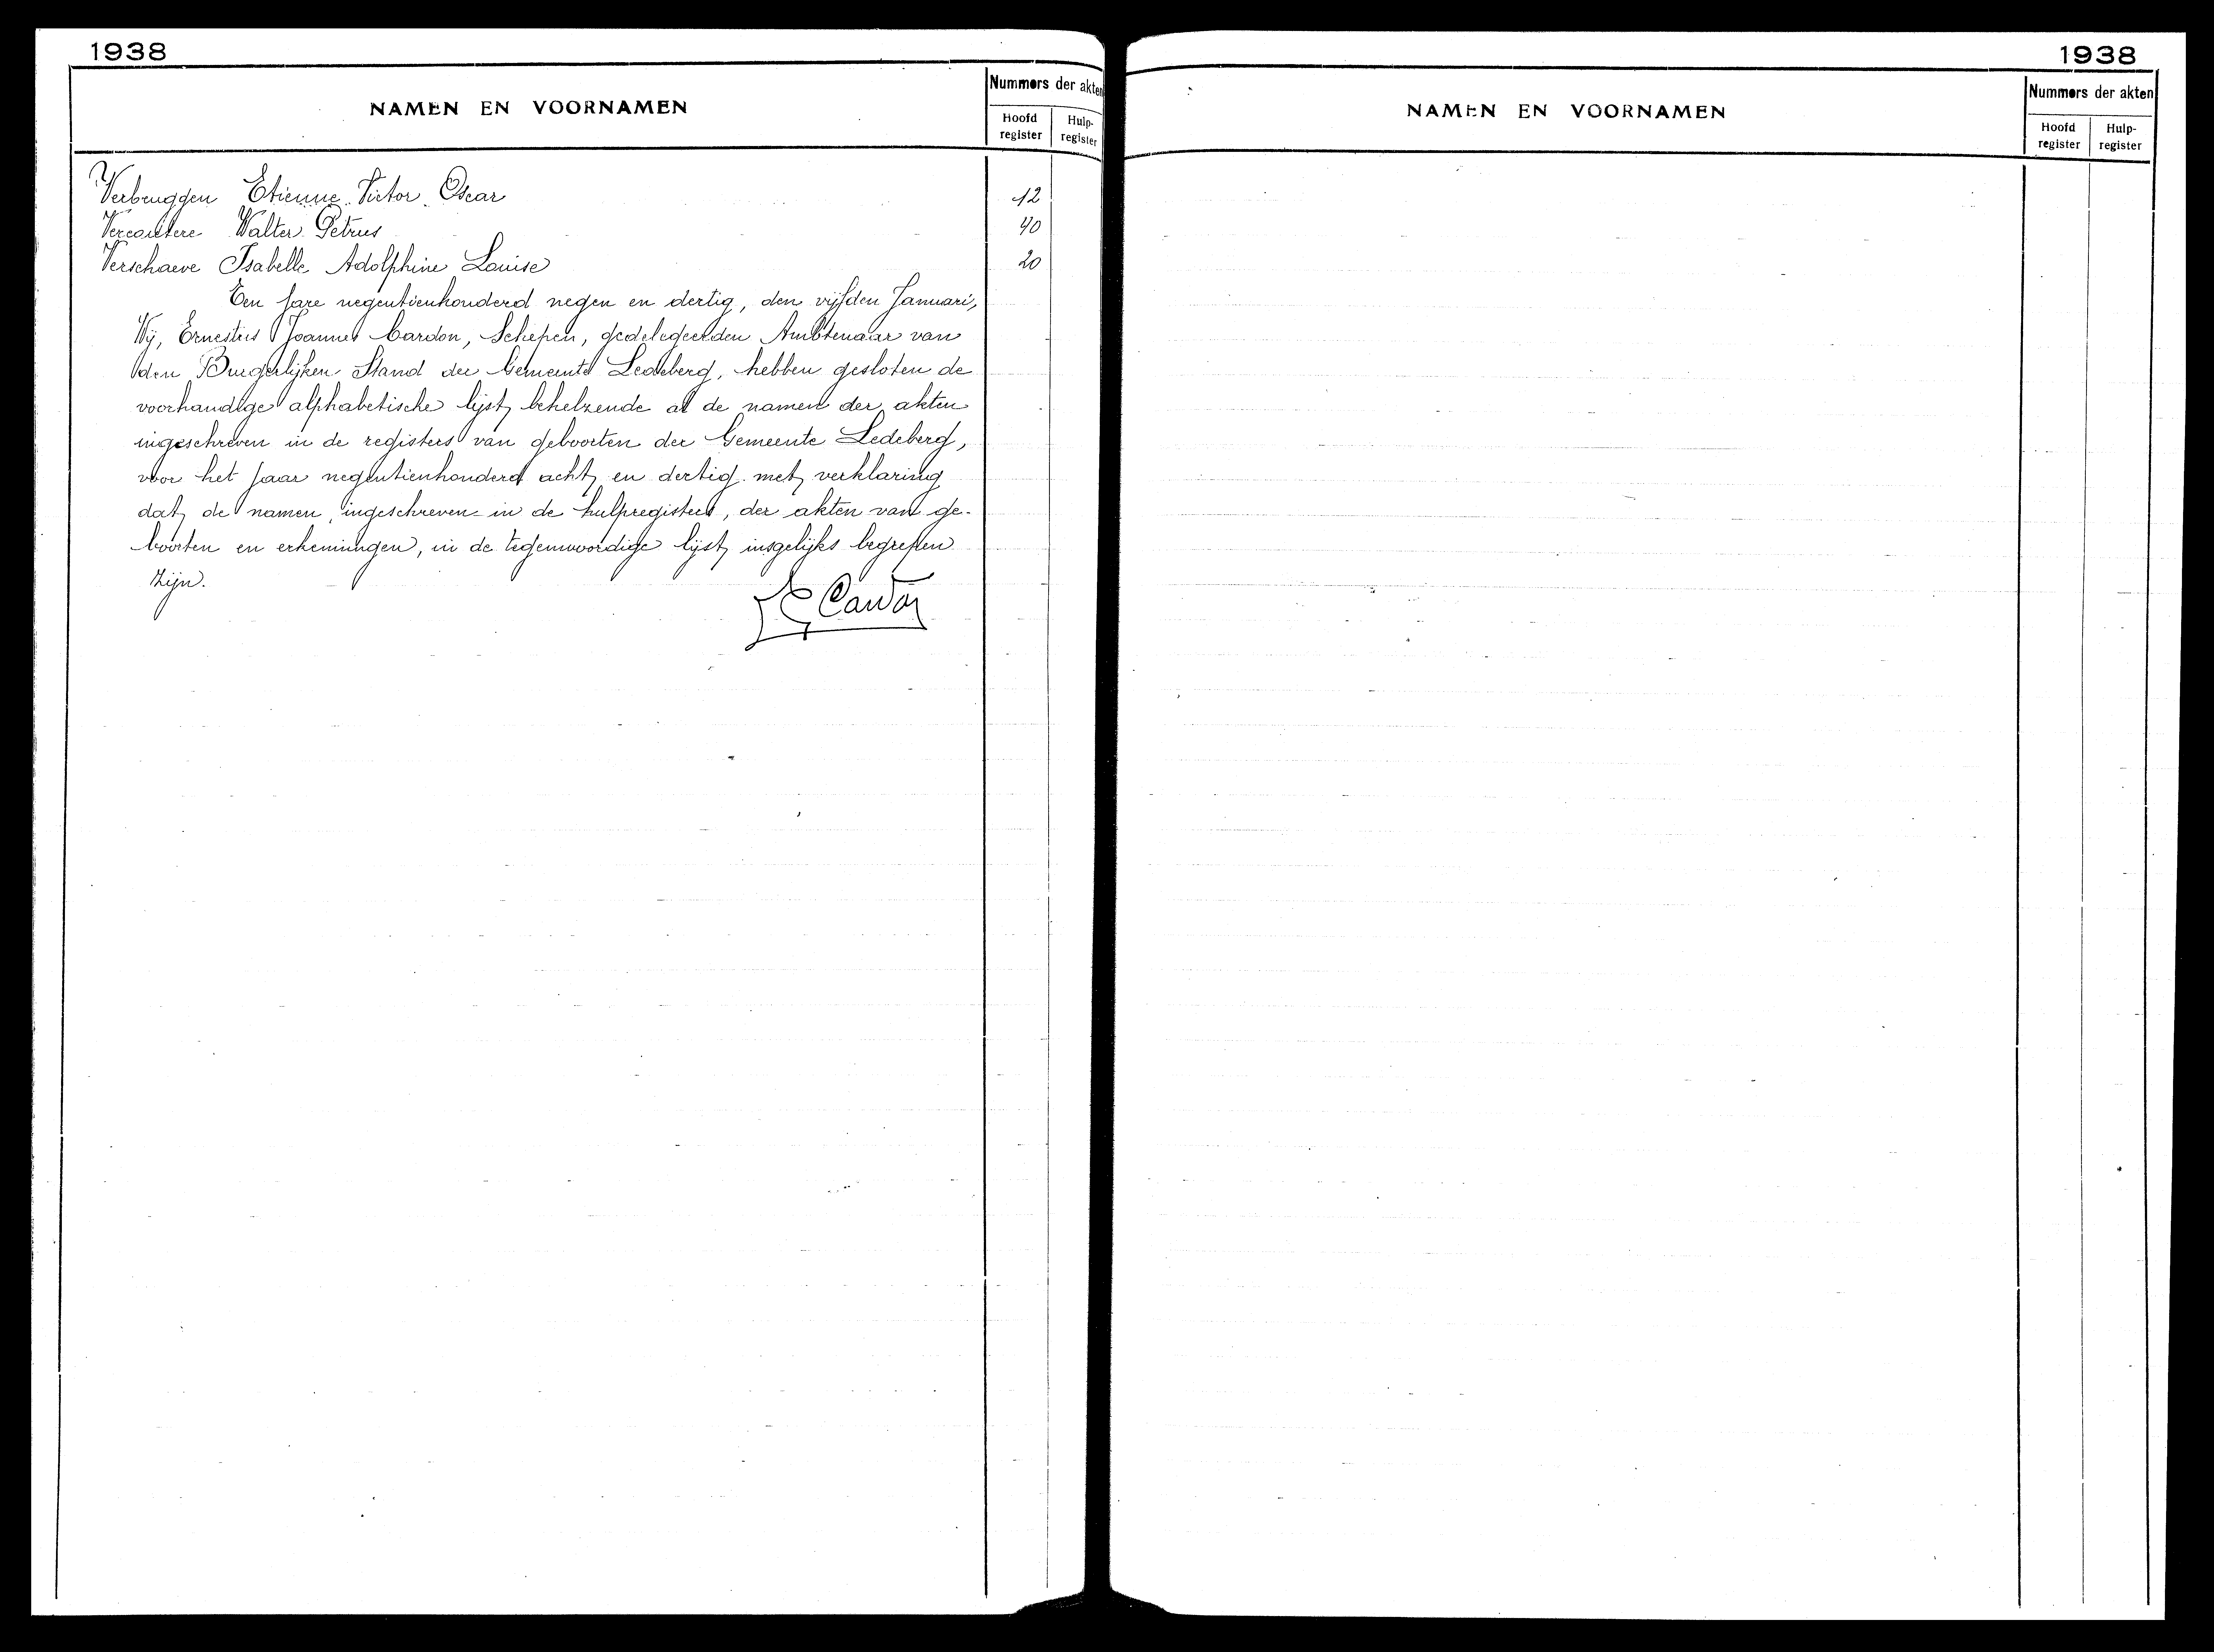 1938
NAMEN EN VOORNAMEN
Nummers der akten
Hoofd register
Hulp-register
Verbruggen Etienne Victor Oscar 12
Vercautere Walter Petrus 40
Verschaeve Isabelle Adolphine Louise 20
Ten jare negentienhonderd negen en dertig, den vijfden Januari,
Wij, Ernestus Joannes Cardon, Schepen, gedelegeerden Ambtenaar van
den Burgerlijken Stand der Gemeente Ledeberg, hebben gesloten de
voorhandige alphabetische lijst, behelzende al de namen der akten
ingeschreven in de registers van geboorten der Gemeente Ledeberg,
voor het jaar negentienhonderd acht en dertig met verklaring
dat de namen, ingeschreven in de hulpregisters, der akten van ge-
boorten en erkenningen, in de tegenwoordige lijst, insgelijks begrepen
zijn.
E Cardon
1938
NAMEN EN VOORNAMEN
Nummers der akten
Hoofd register
Hulp-register